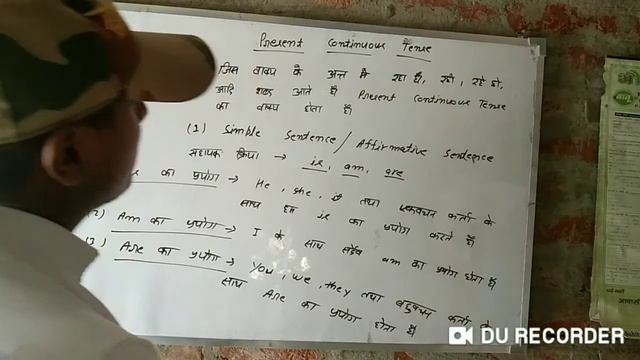 Present Continuous Tense
जिस वाक्य के अन्त में रहा है, रही, रहे हो,
आदि शब्द आते हैं Present Continuous Tense
का वाक्य होता है।
(1) Simple Sentence / Affirmative Sentence
सहायक क्रिया → is, am, are
का प्रयोग → He, she, it तथा एकवचन कर्ता के
साथ हम is का प्रयोग करते हैं
(2) Am का प्रयोग → I के साथ सदैव am का प्रयोग होता है
(3) Are का प्रयोग → You, we, they तथा बहुवचन कर्ता के
साथ Are का प्रयोग होता है
DU RECORDER